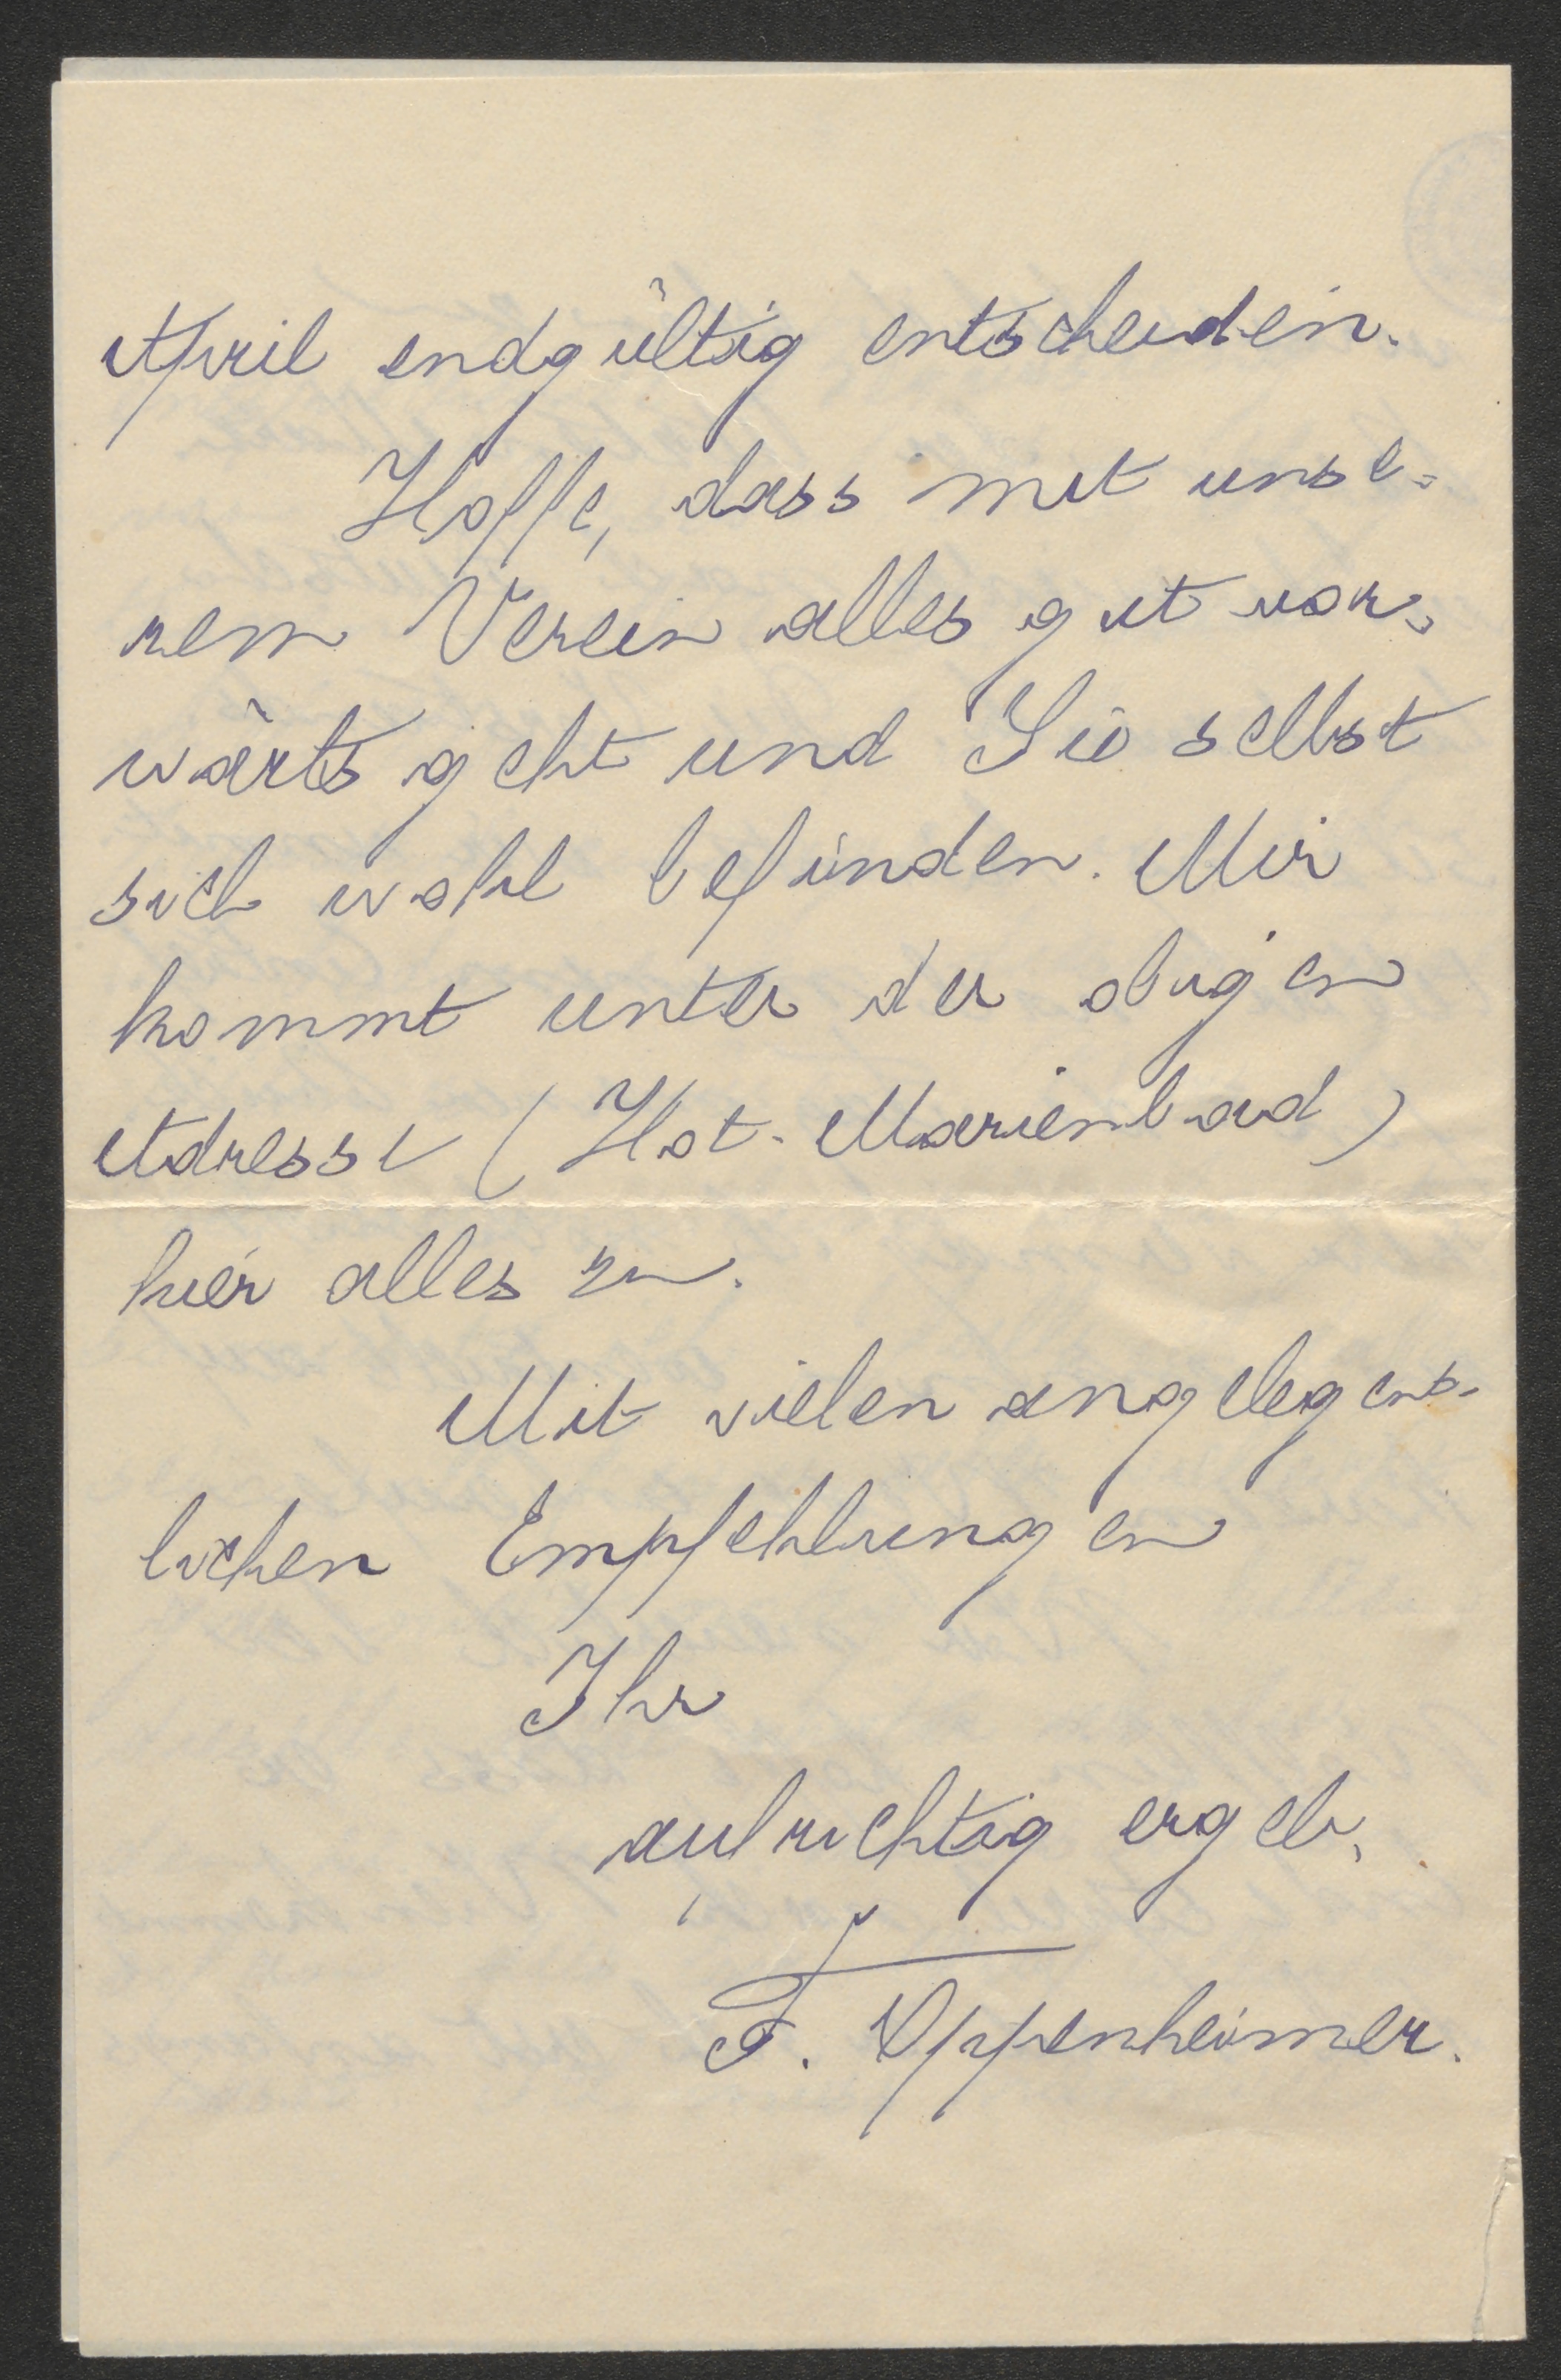 April endgültig entscheiden.
Hoffe, dass mit unse-
rem Verein alles gut vor-
wärts geht und Sie selbst
sich wohl befinden. Mir
kommt unter der obigen
Adresse (Hot. Marienbad)
hier alles zu.
Mit vielen angelegent-
lichen Empfehlungen
Ihr
aufrichtig ergeb.
F. Oppenheimer.